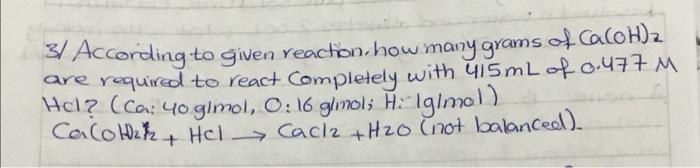 3/ According to given reaction, how many grams of Ca(OH)2
are required to react completely with 415mL of 0.477 M
HCl? (Ca: 40 g/mol, O: 16 g/mol; H: 1g/mol)
Ca(OH)2 + HCl → CaCl2 + H2O (not balanced).